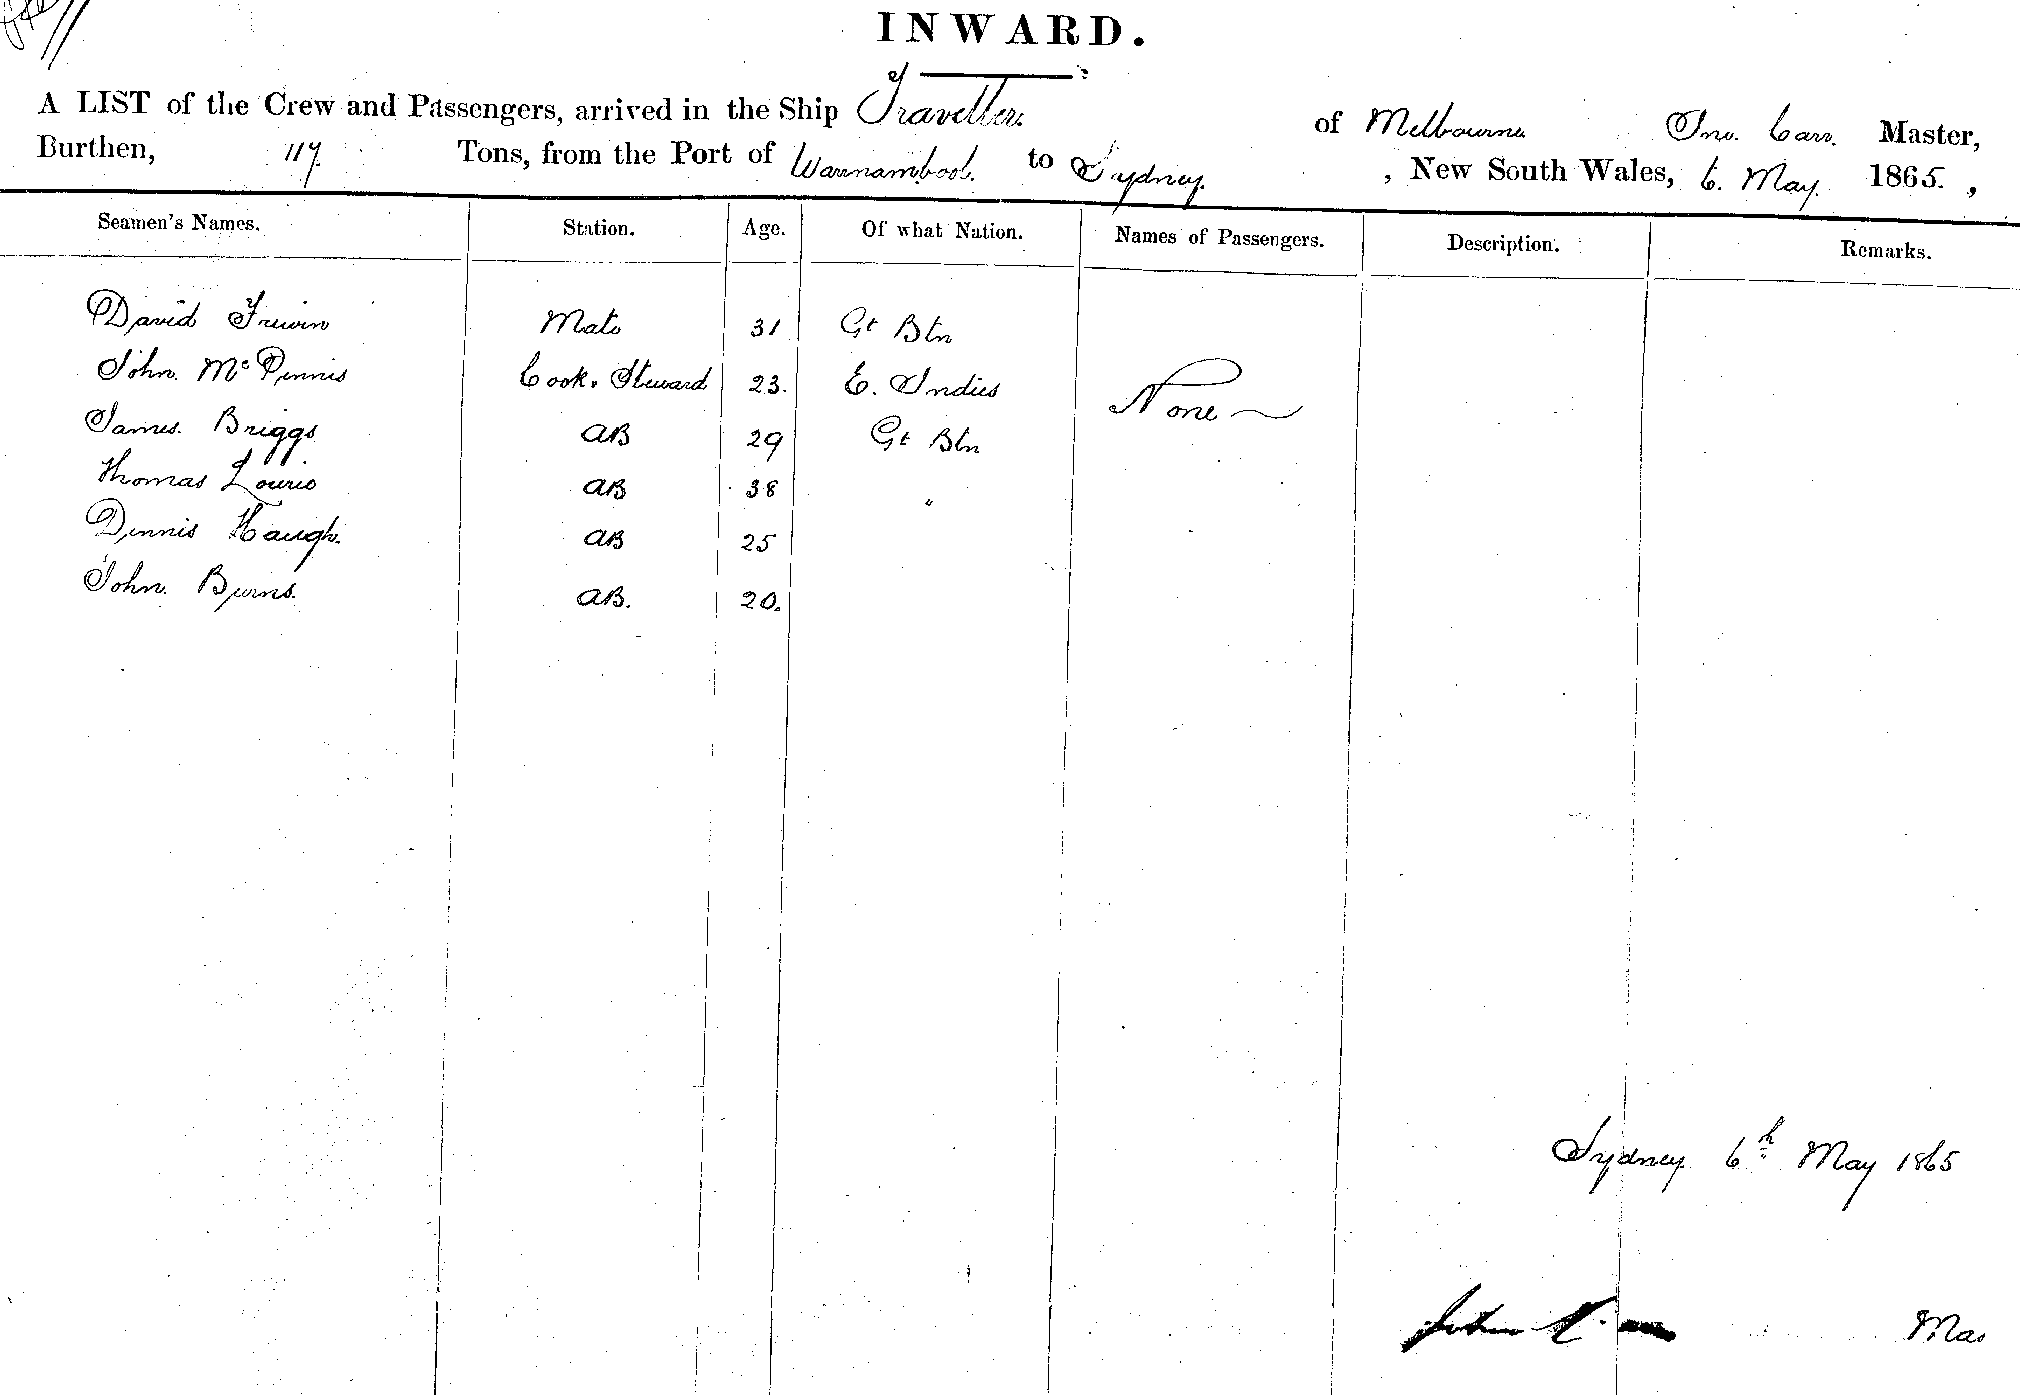 INWARD.
A LIST of the Crew and Passengers, arrived in the Ship Traveller. of Melbourne Jno. Carr. Master,
Burthen, 117. Tons, from the Port of Warrnambool. to Sydney. , New South Wales, 6. May. 1865. ,
Seamen's Names. Station. Age. Of what Nation. Names of Passengers. Description. Remarks.
David Irwin Mate 31 Gt Btn
John. McPennis Cook. Steward 23. E. Indies None
James. Briggs AB 29 Gt Btn
Thomas Lourie AB 38 "
Dennis Haugh. AB 25
John. Burns. AB. 20.
Sydney. 6th May 1865
John Mas